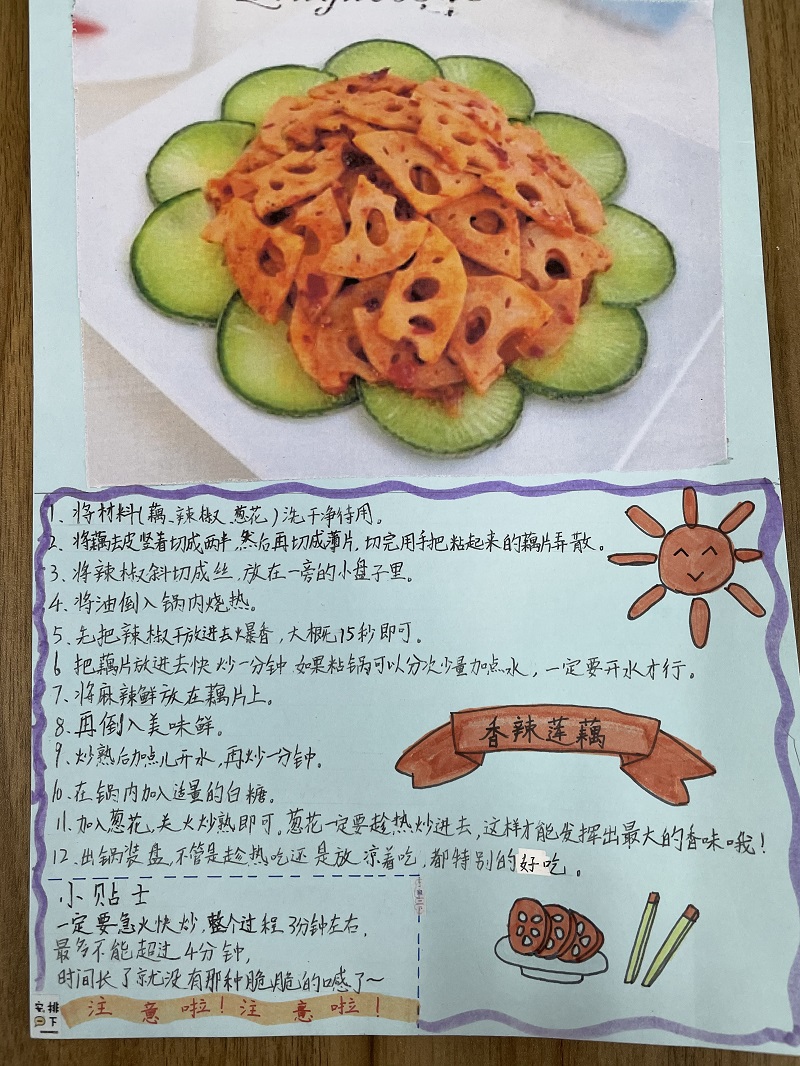 1、将材料(藕、辣椒、葱花)洗干净待用。
2、将藕去皮竖着切成两半,然后再切成薄片,切完用手把粘起来的藕片弄散。
3、将辣椒斜切成丝,放在一旁的小盘子里。
4、将油倒入锅内烧热。
5、先把辣椒干放进去爆香,大概15秒即可。
6、把藕片放进去快炒一分钟,如果粘锅可以分次少量加点水,一定要开水才行。
7、将麻辣鲜放在藕片上。
8、再倒入美味鲜。
香辣莲藕
9、炒熟后加点儿开水,再炒一分钟。
10、在锅内加入适量的白糖。
11、加入葱花,关火炒熟即可。葱花一定要趁热炒进去,这样才能发挥出最大的香味哦!
12、出锅装盘,不管是趁热吃还是放凉着吃,都特别的好吃。
小贴士
一定要急火快炒,整个过程3分钟左右,
最多不能超过4分钟,
时间长了就没有那种脆脆的口感了~
安排一下
注意啦!注意啦!